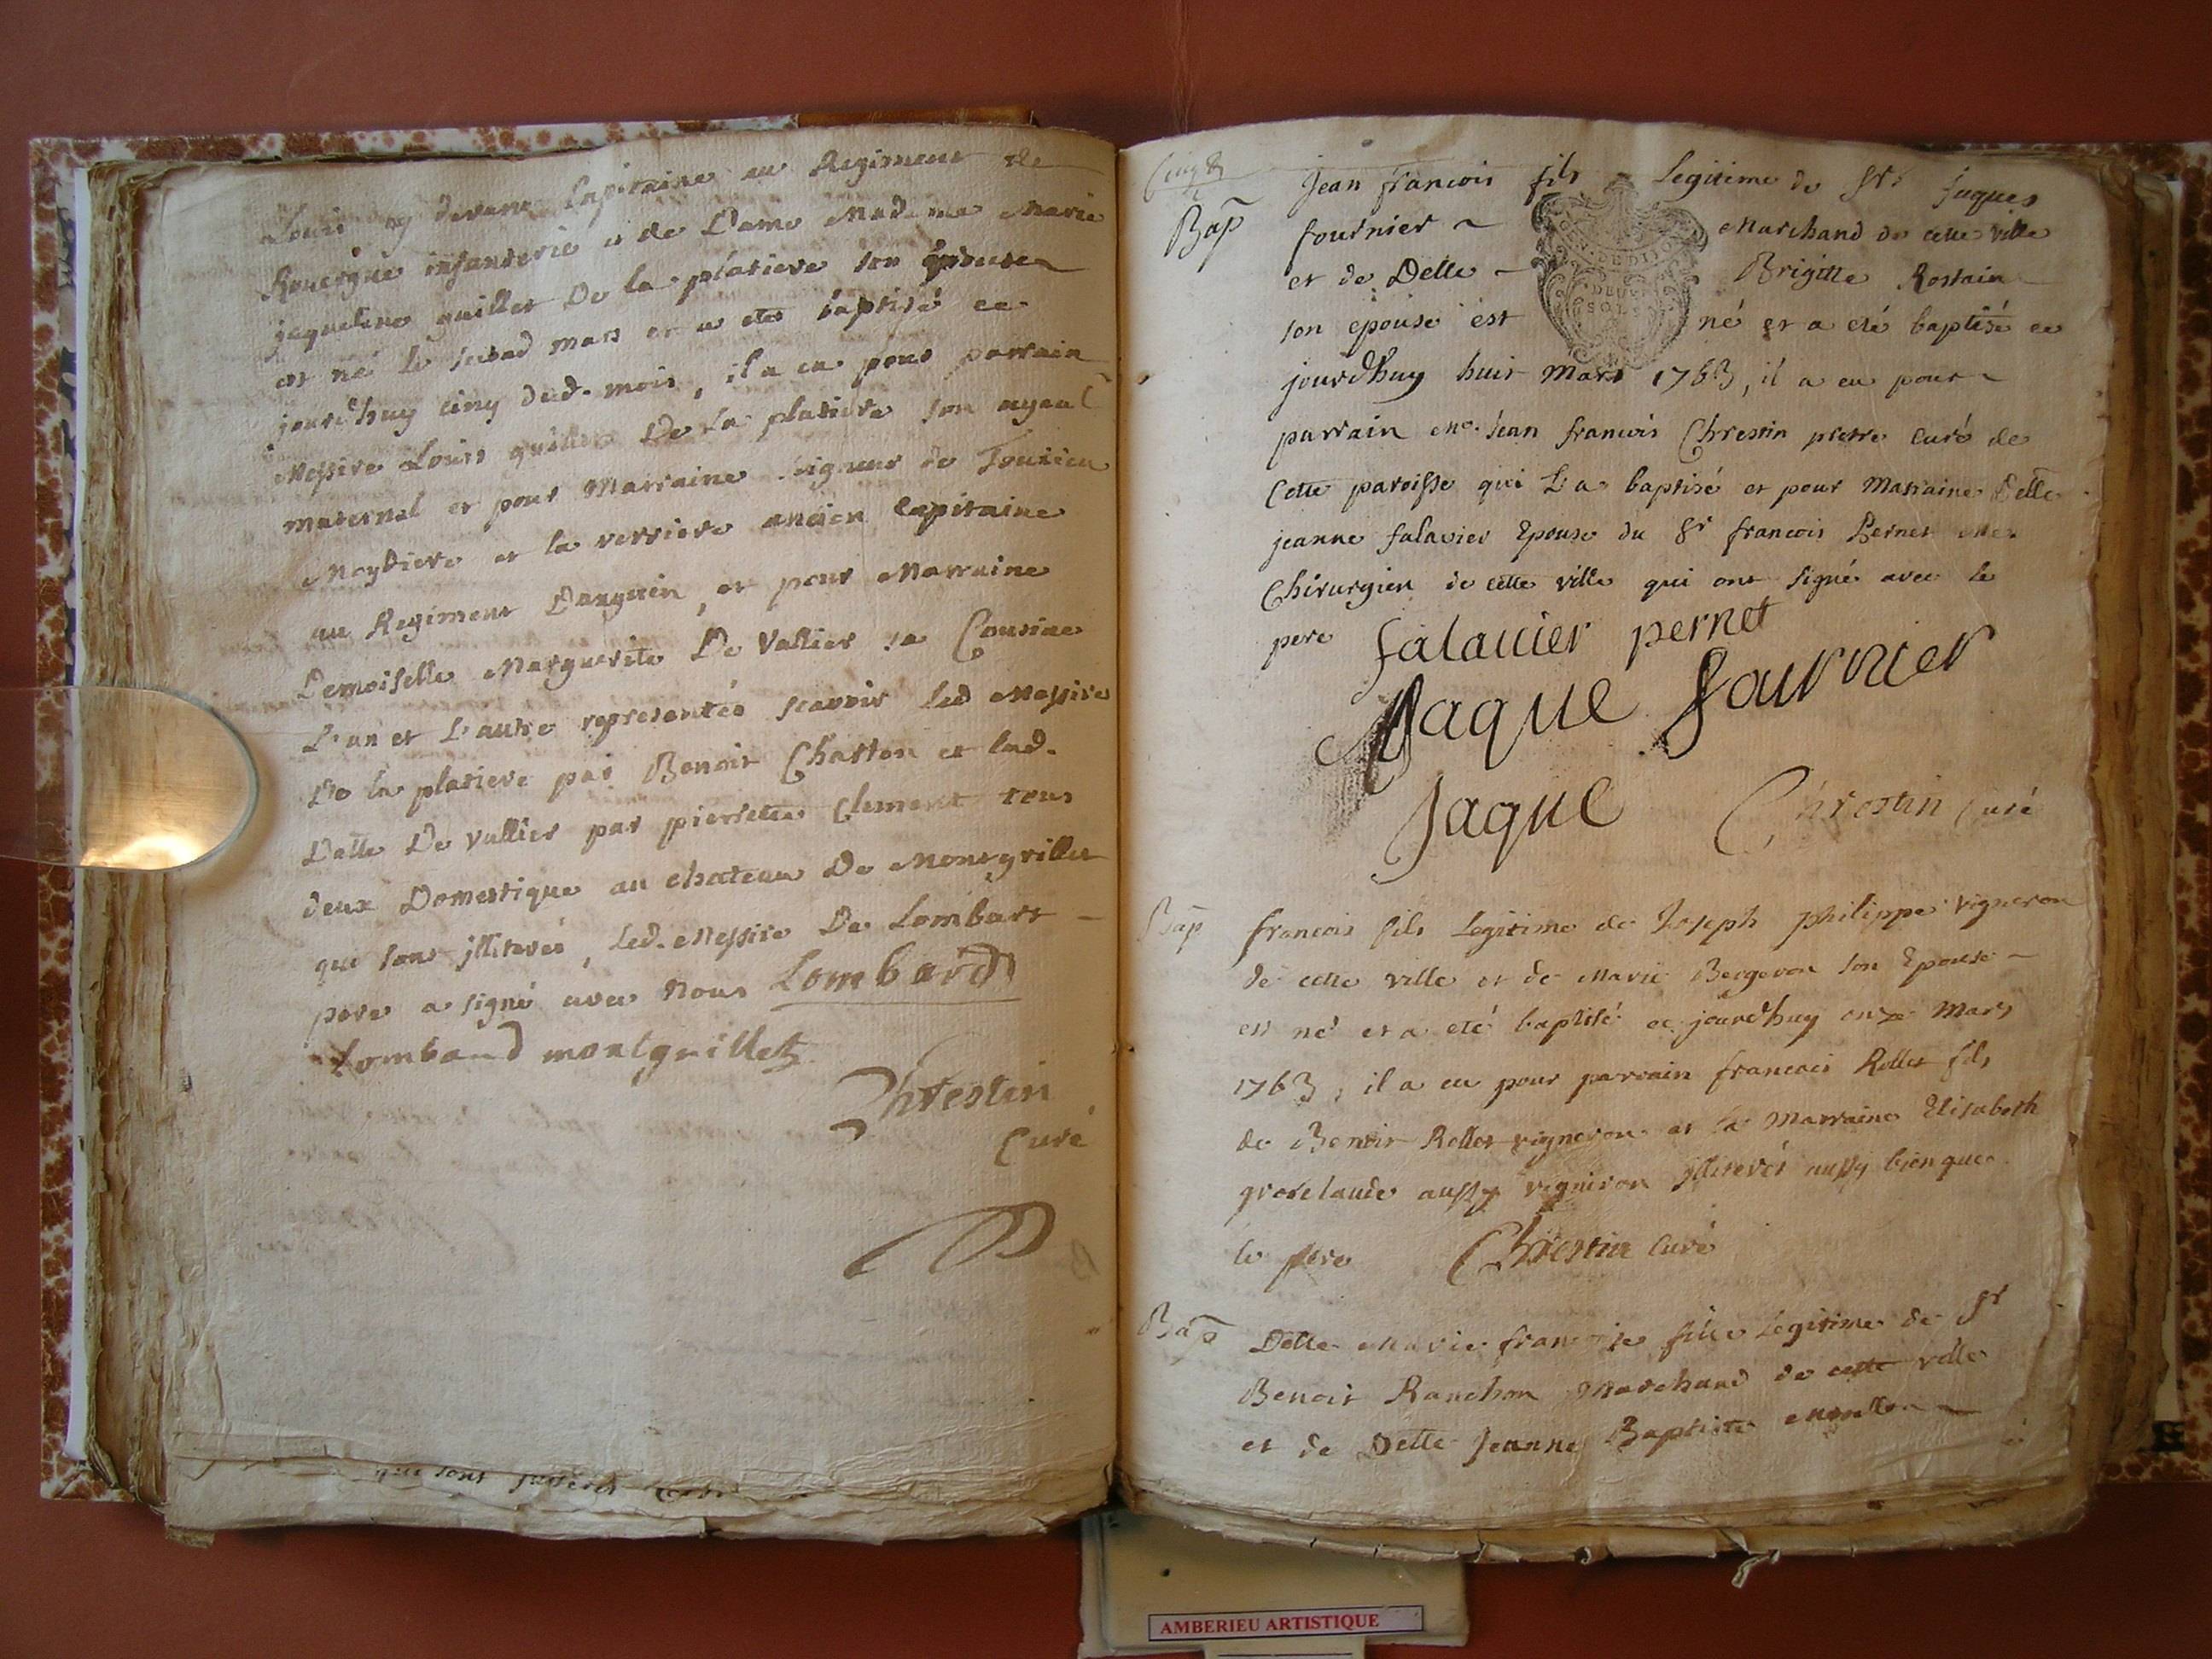 Louis cy devant Capitaine au Regiment de
Rouergue infanterie et de Dame Madame Marie
jaqueline quillet De la platiere son épouse
est né le second mars et a eté baptisé ce
jourd'huy cinq dud. mois, il a eu pour parrain
Messire Louis quillet De La platiere son ayeul
maternel et pour Marraine seigneur de
et la verriere ancien Capitaine
au Regiment et pour Marraine
Demoiselle Marguerite De Vallier sa Cousine
L'un et L'autre representés scavoir led Messire
De la platiere par Benoit Chatton et lad.
Delle De Vallier par pierrette Clement tous
deux Domestique au chateau De Montgrillet
qui sont jlliterés, Led. Messire De Lombart
pere a signé avec Nous Lombard
Lombard montgrillet
Chrestin
Curé
que sont
Bap Jean francois fils Legitime de Sr. jaques
fournier Marchand de cette ville
et de Delle Brigitte Rostain
son epouse est né et a eté baptisé ce
jourdhuy huit Mars 1763, il a eu pour
parrain me. jean francois Chrestin pretre curé de
Cette paroisse qui L'a baptisé et pour Marraine Delle
jeanne falavier Epouse du Sr francois Pernet me
Chirurgien de cette ville qui ont signé avec le
pere falavier pernet
Jaque Fournier
Jaque Chrestin Curé
Bap francois fils Legitime de Joseph philippe vigneron
de cette ville et de Marie Bergeron son Epouse
est né et a eté baptisé ce jourdhuy onze Mars
1763, il a eu pour parrain francois Rollet fils
de Benoit Rollet vigneron et la Marraine Elisabeth
aussy vigneron jlliterés aussy bien que
le pere Chrestin Curé
Bap Delle Marie francoise fille Legitime de Sr
Benoit Ranchon Marchand de cette ville
et de Delle Jeanne Baptiste
AMBERIEU ARTISTIQUE